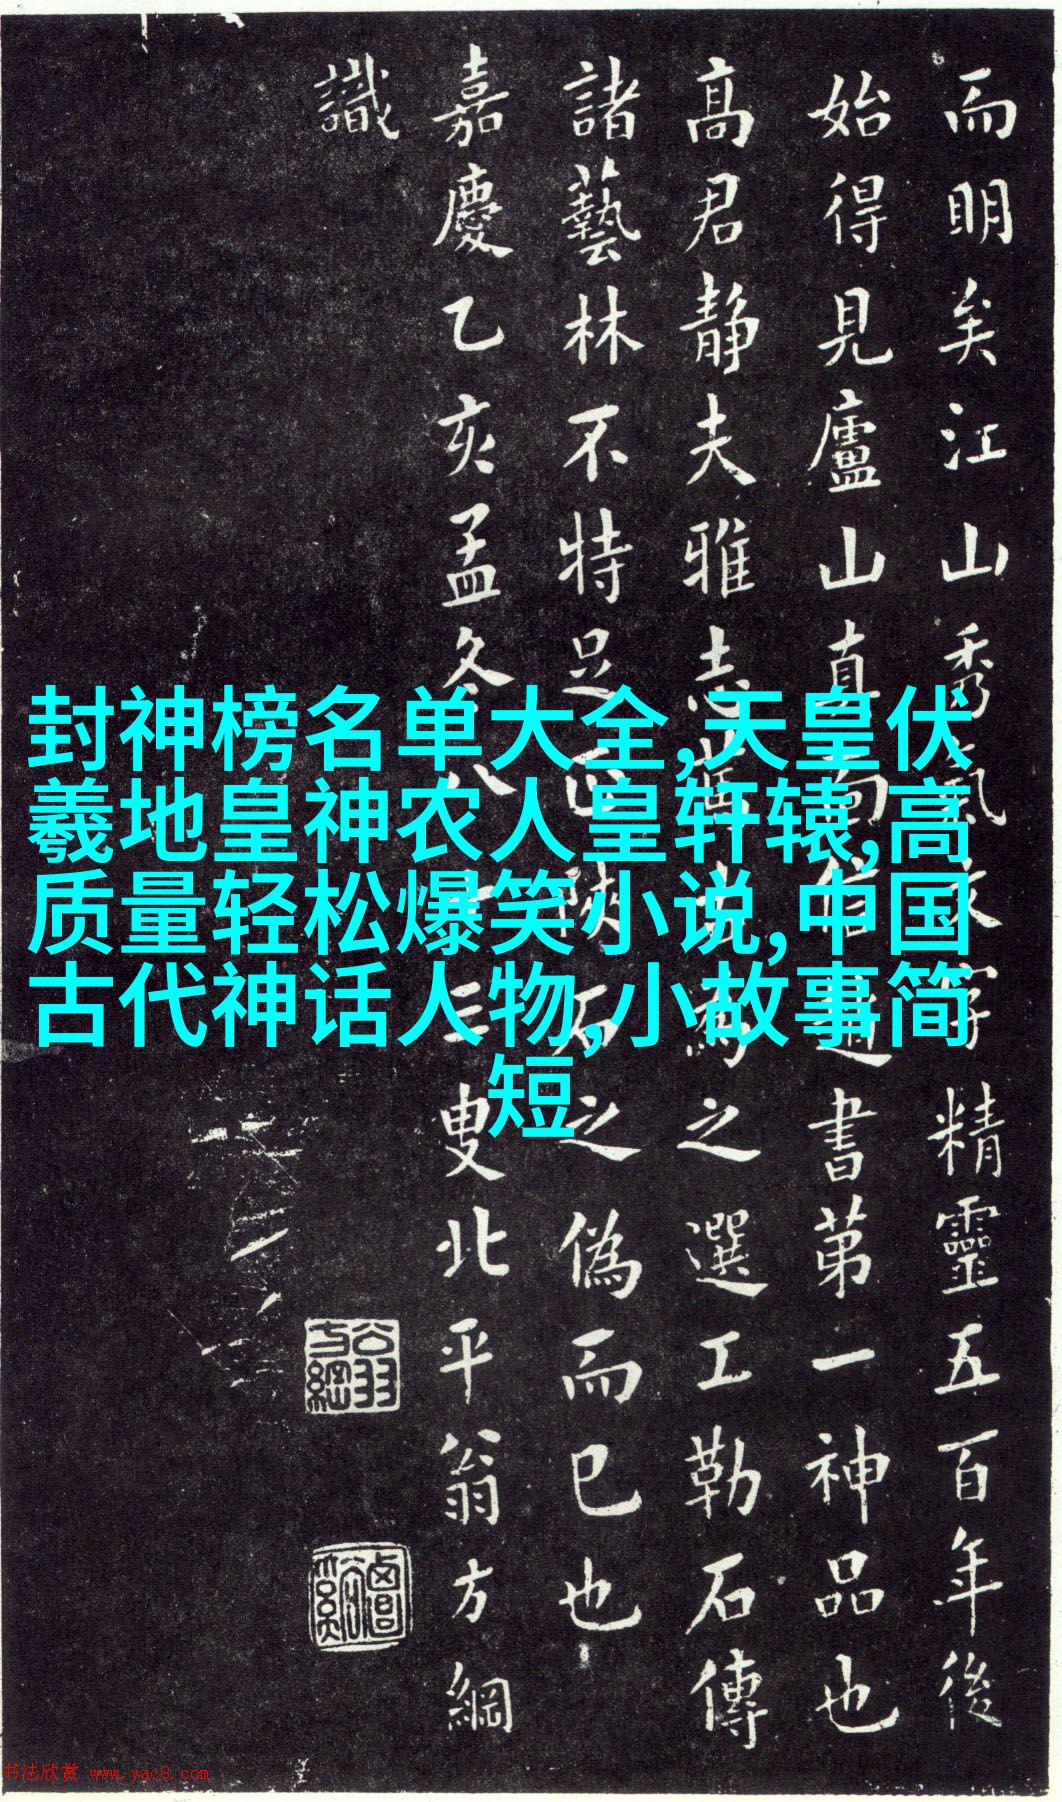 封神榜名单大全,天皇伏
羲地皇神农人皇轩辕,高
质量轻松爆笑小说,中国
古代神话人物,小故事简
短
而明矣江山秀氣字精靈五百年後
始得見廬山真面書第一神品也
高君靜夫雅志之選工勒石傳
諸藝林不特足正陝石之偽而已也
嘉慶乙亥孟冬八十三叟北平翁方綱
識
翁方綱
书法欣赏 www.yac8.com